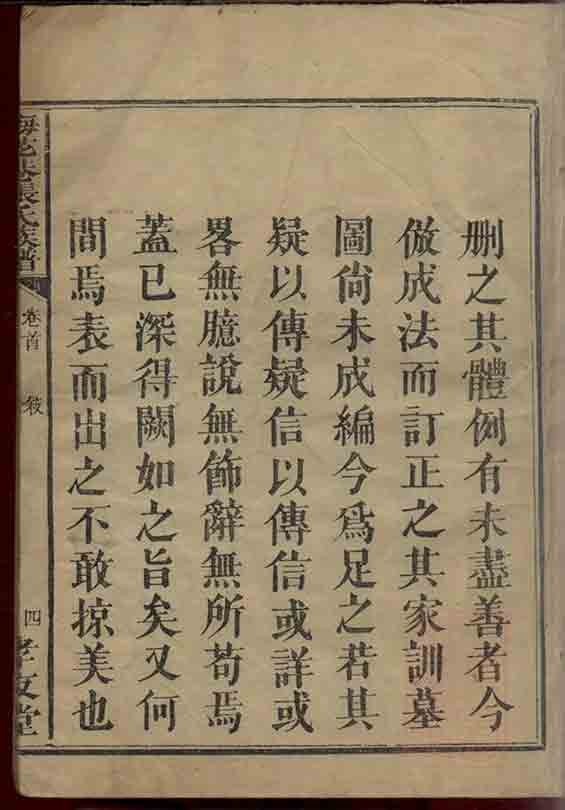 删之其體例有未盡善者今
倣成法而訂正之其家訓墓
圖尙未成編今爲足之若其
疑以傳疑信以傳信或詳或
畧無臆說無飾辭無所苟焉
蓋已深得闕如之旨矣又何
間焉表而出之不敢掠美也
張氏族譜
卷首
四
堂